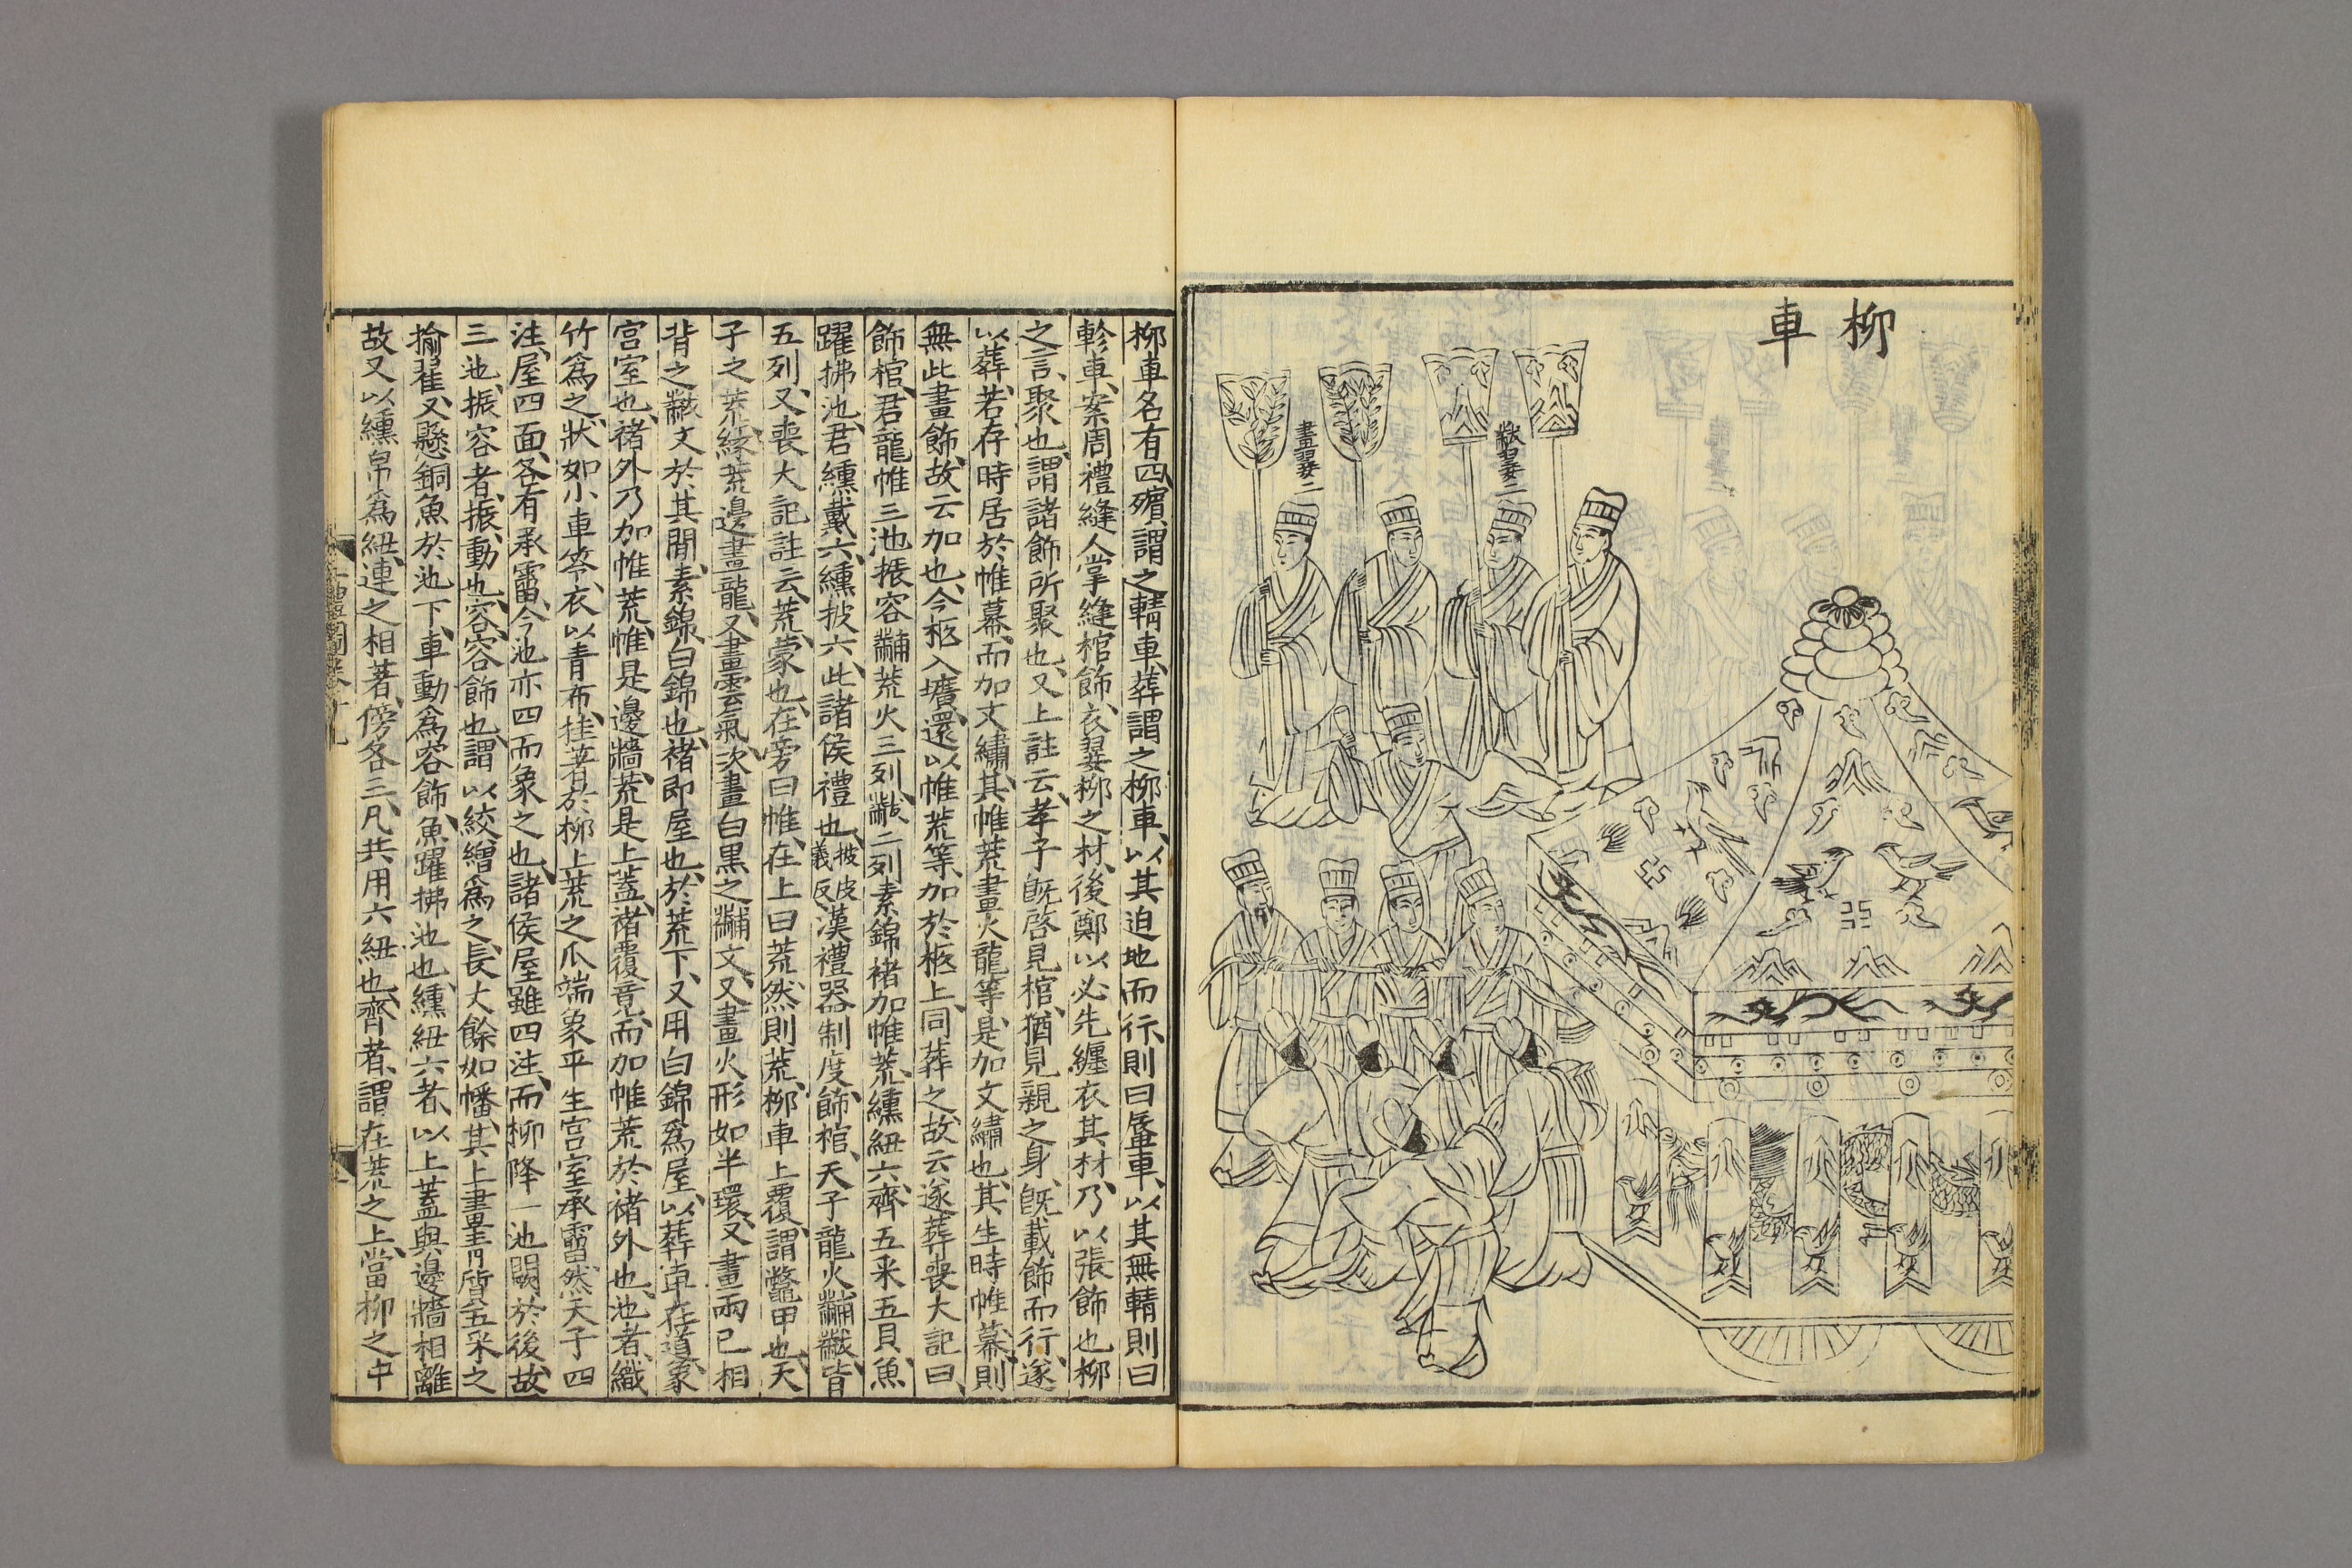 柳車
黻翣二
畫翣二
柳車名有四殯謂之輤車葬謂之柳車以其迫地而行則曰蜃車以其無輤則曰
軫車案周禮縫人掌縫棺飾衣翣柳之材後鄭以必先纒衣其材乃以張飾也柳
之言聚也謂諸飾所聚也又上註云孝子旣啓見棺猶見親之身旣載飾而行遂
以葬若存時居於帷幕而加文繡其帷荒畫火龍等是加文繡也其生時帷幕則
無此畫飾故云加也今柩入壙還以帷荒等加於柩上同葬之故云遂葬喪大記曰
飾棺君龍帷三池振容黼荒火三列黻三列素錦褚加帷荒纁紐六齊五采五貝魚
躍拂池君纁戴六纁披六此諸侯禮也披皮義反漢禮器制度飾棺天子龍火黼黻皆
五列又喪大記註云荒蒙也在旁曰帷在上曰荒然則荒柳車上覆謂鼈甲也天
子之荒緣荒邊畫龍又畫雲氣次畫白黑之黼文又畫火形如半環又畫兩已相
背之黻文於其間素錦白錦也褚即屋也於荒下又用白錦爲屋以葬車在道象
宮室也褚外乃加帷荒帷是邊牆荒是上蓋褚覆竟而加帷荒於褚外也池者織
竹爲之狀如小車笭衣以青布挂著於柳上荒之爪端象平生宮室承霤然天子四
注屋四面各有承霤今池亦四而象之也諸侯屋雖四注而柳降一池闕於後故
三池振容者振動也容容飾也謂以絞繒爲之長丈餘如幡其上畫青質五采之
揄翟又懸銅魚於池下車動爲容飾魚躍拂池也纁紐六者以上蓋與邊牆相離
故又以纁帛爲紐連之相著傍各三凡共用六紐也齊者謂在荒之上當柳之中